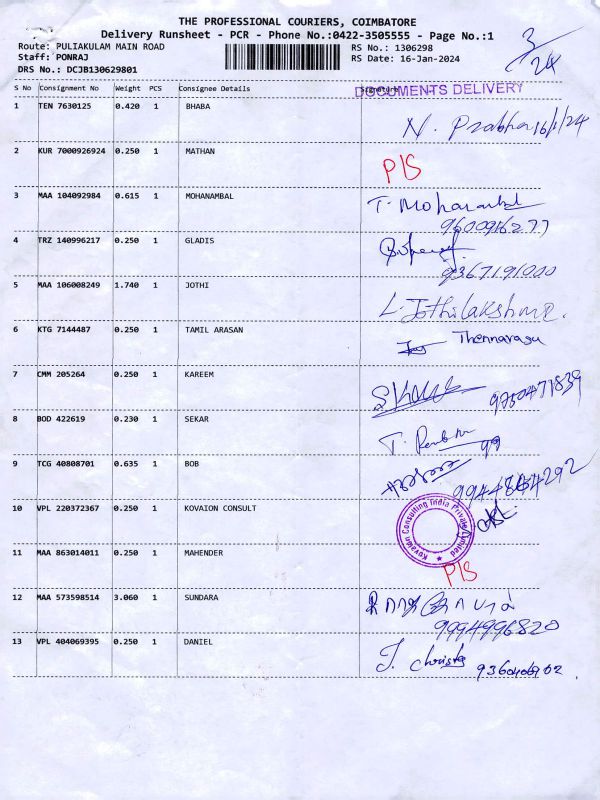 THE PROFESSIONAL COURIERS, COIMBATORE
Delivery Runsheet - PCR - Phone No.:0422-3505555 - Page No.:1
Route: PULIAKULAM MAIN ROAD RS No.: 1306298
Staff: PONRAJ RS Date: 16-Jan-2024
DRS No.: DCJB130629801
3/24
S No Consignment No Weight PCS Consignee Details Signature
DOCUMENTS DELIVERY
1 TEN 7630125 0.420 1 BHABA N. Prabha 16/1/24
2 KUR 7000926924 0.250 1 MATHAN P/S
3 MAA 104092984 0.615 1 MOHANAMBAL T. Mohanambal
9600916277
4 TRZ 140996217 0.250 1 GLADIS
9367191000
5 MAA 106008249 1.740 1 JOTHI L. Jothilakshmi.
6 KTG 7144487 0.250 1 TAMIL ARASAN Thennarasu
7 CMM 205264 0.250 1 KAREEM 9750471839
8 BOD 422619 0.230 1 SEKAR
9 TCG 40808701 0.635 1 BOB
10 VPL 220372367 0.250 1 KOVAION CONSULT Kovaion Consulting India Private Limited
11 MAA 863014011 0.250 1 MAHENDER P/S
12 MAA 573598514 3.060 1 SUNDARA
9994996820
13 VPL 404069395 0.250 1 DANIEL J.